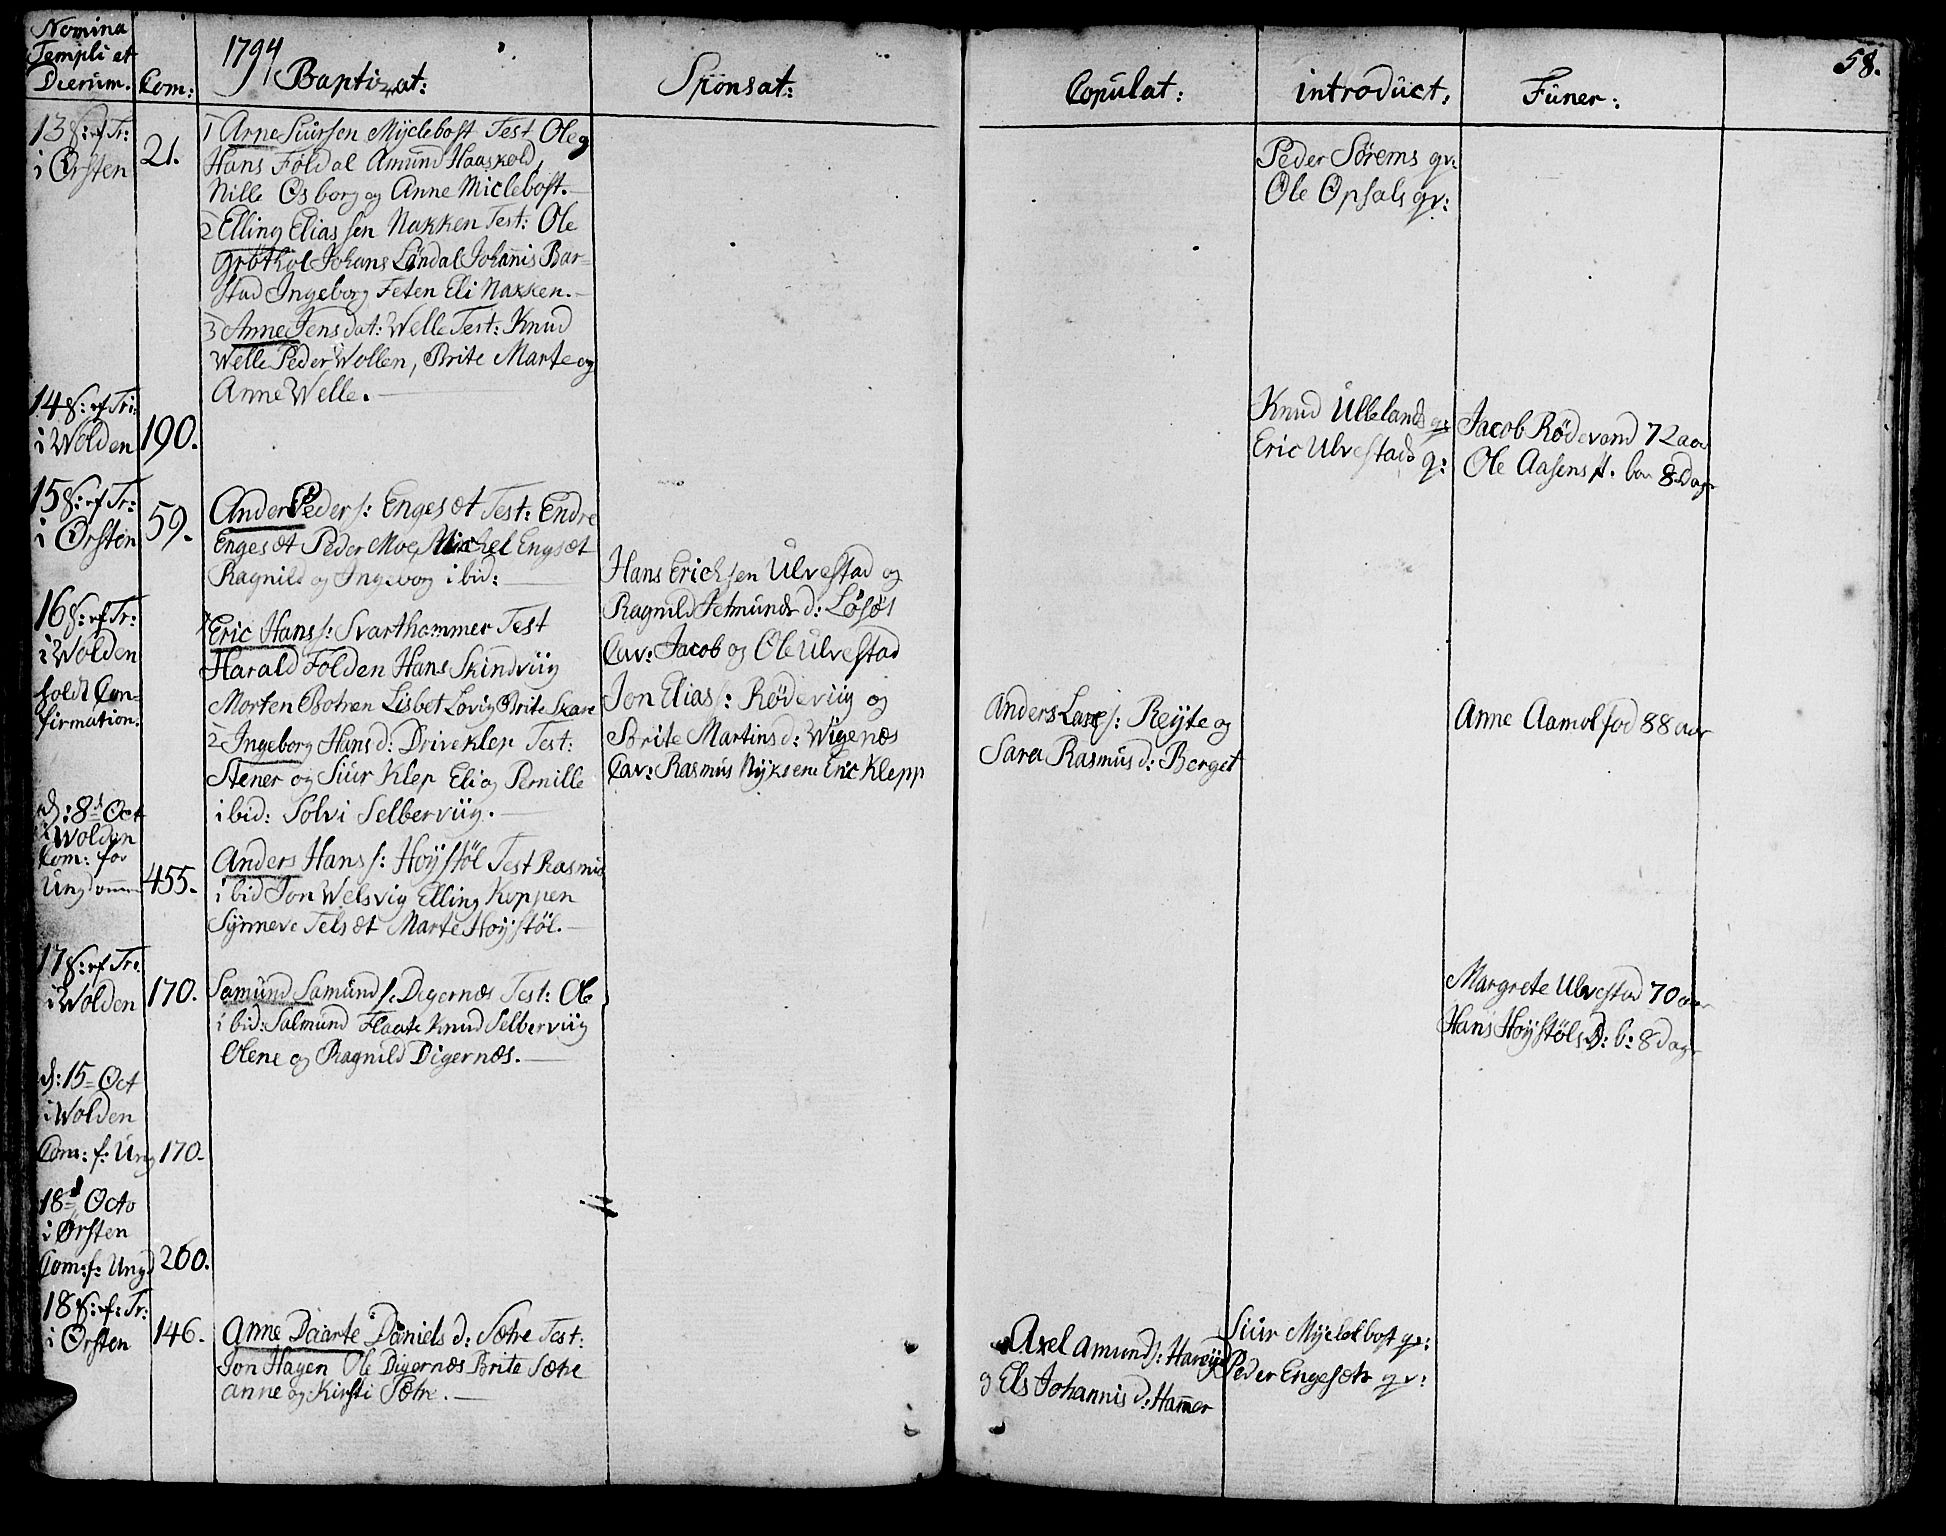 58.
Nomina
Templi et
Dierum.
Com:
1794
Baptizat:
Sponsat:
Copulat:
introduct,
Funer:
13 S: ef Tr:
i Ørsten
21.
1 Arne Siursen Myclebost Test Ole og
Hans Foldal Amund Haaskold,
Nille Osborg og Anne Miclebost.
2 Elling Elias sen Nakken Test: Ole
Grøthol Johans Løndal Johanis Bar-
stad Ingeborg Feten Eli Nakken.
3 Anne Jens dat: Welle Test: Knud
Welle Peder Wollen, Brite Marte og
Anne Welle.
Peder Sørems qv:
Ole Opsals qv:
14 S: ef Tri:
i Wolden
190.
Knud Ullelands q:
Eric Ulvestads q:
Jacob Rødevand 72 aar
Ole Aasens bar 8 Dage
15 S: ef Tr:
i Ørsten
59.
Anders Peder s: Engesæt Test: Endre
Engesæt Peder Moe, Michel Engsæt
Ragnild og Ingeborg ibid:
16 S: ef Tr:
i Wolden
holdt Con-
firmation.
1 Eric Hans s: Svarthammer Test
Harald Folden Hans Skindviig
Morten Botnen Lisbet Lovig Brite Skare
2 Ingeborg Hans d: Driveklep Test:
Stener og Siur Klep Eli og Pernille
ibid: Solvi Selberviig.
Hans Erichsen Ulvestad og
Ragnild Jetmunds d: Løsæt
Cav: Jacob og Ole Ulvestad
Jon Elias s: Rødeviig og
Brite Martins d: Wigenæs
Cav: Rasmus Nyksene Eric Klepp
Anders Lars s: Reyte og
Sara Rasmus d: Berget
Anne Aamol fod 88 aar
d: 8d Oct
i Wolden
Com: for
Ungdommen
455.
Anders Hans s: Hoystøl Test Rasmus
ibid Jon Welsvig Elling Koppen
Synneve Telsæt Marte Hoystøl.
17 S: ef Tr:
i Wolden
170.
Samund Samund s: Degernæs Test: Ole
ibid: Salmund Flaate Knud Selberviig
Olene og Ragnild Digernæs.
Margrete Ulvestad 70 aar
Hans Hoystøls D: b: 8 Dage
d: 15= Oct
i Wolden
Com: f: Ung
170.
18=d Octo
i Ørsten
Com: f: Ungd
260.
18 S: ef: Tr:
i Ørsten
146.
Anne Daarte Daniels d: Sætre Test:
Jon Hagen Ole Digernæs Brite Sætre
anne og Kirsti Sætre.
Axel Amund s: Hareyd
og Els Johannis d: Hamer
Siur Myclebost qv:
Peder Engesæts qv: